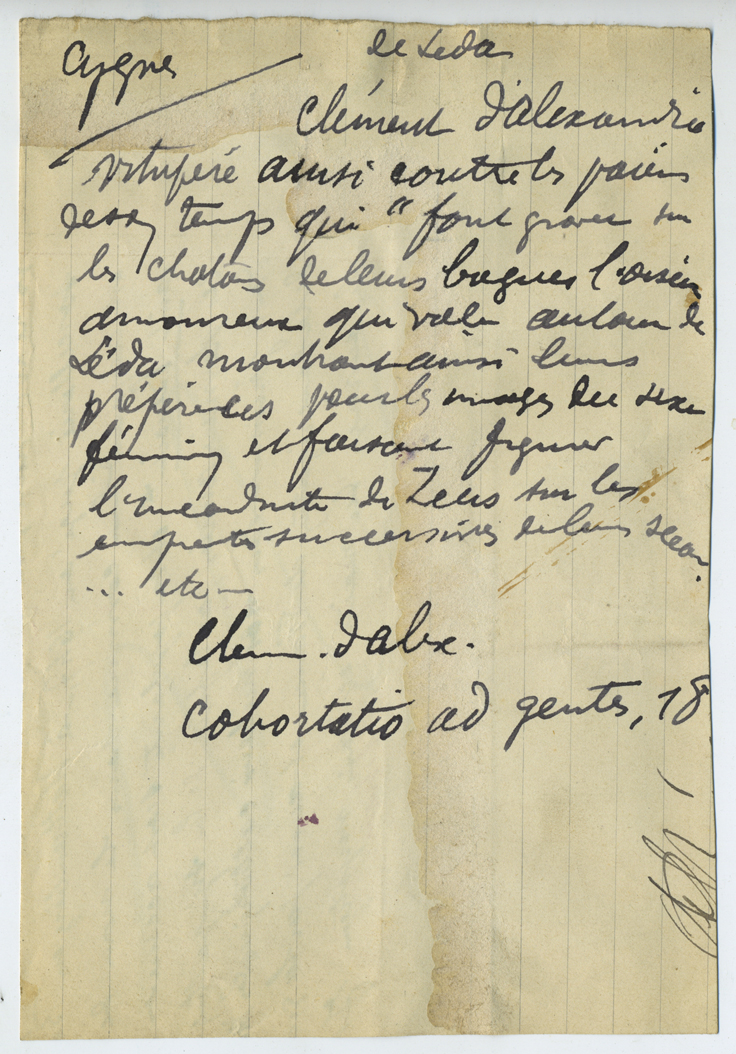 Cygnes
de Léda
Clément d'Alexandrie
vitupéré ainsi contre les païens
de son temps qui "font graver sur
les chatons de leurs bagues l'oiseau
amoureux qui vole autour de
Léda montrant ainsi leurs
préférences pour les images du sexe
féminin et faisant figurer
l'inconduite de Zeus sur les
empreintes successives de leur sceau.
... etc —
Clem. d'Alex.
Cohortatio ad gentes, 18